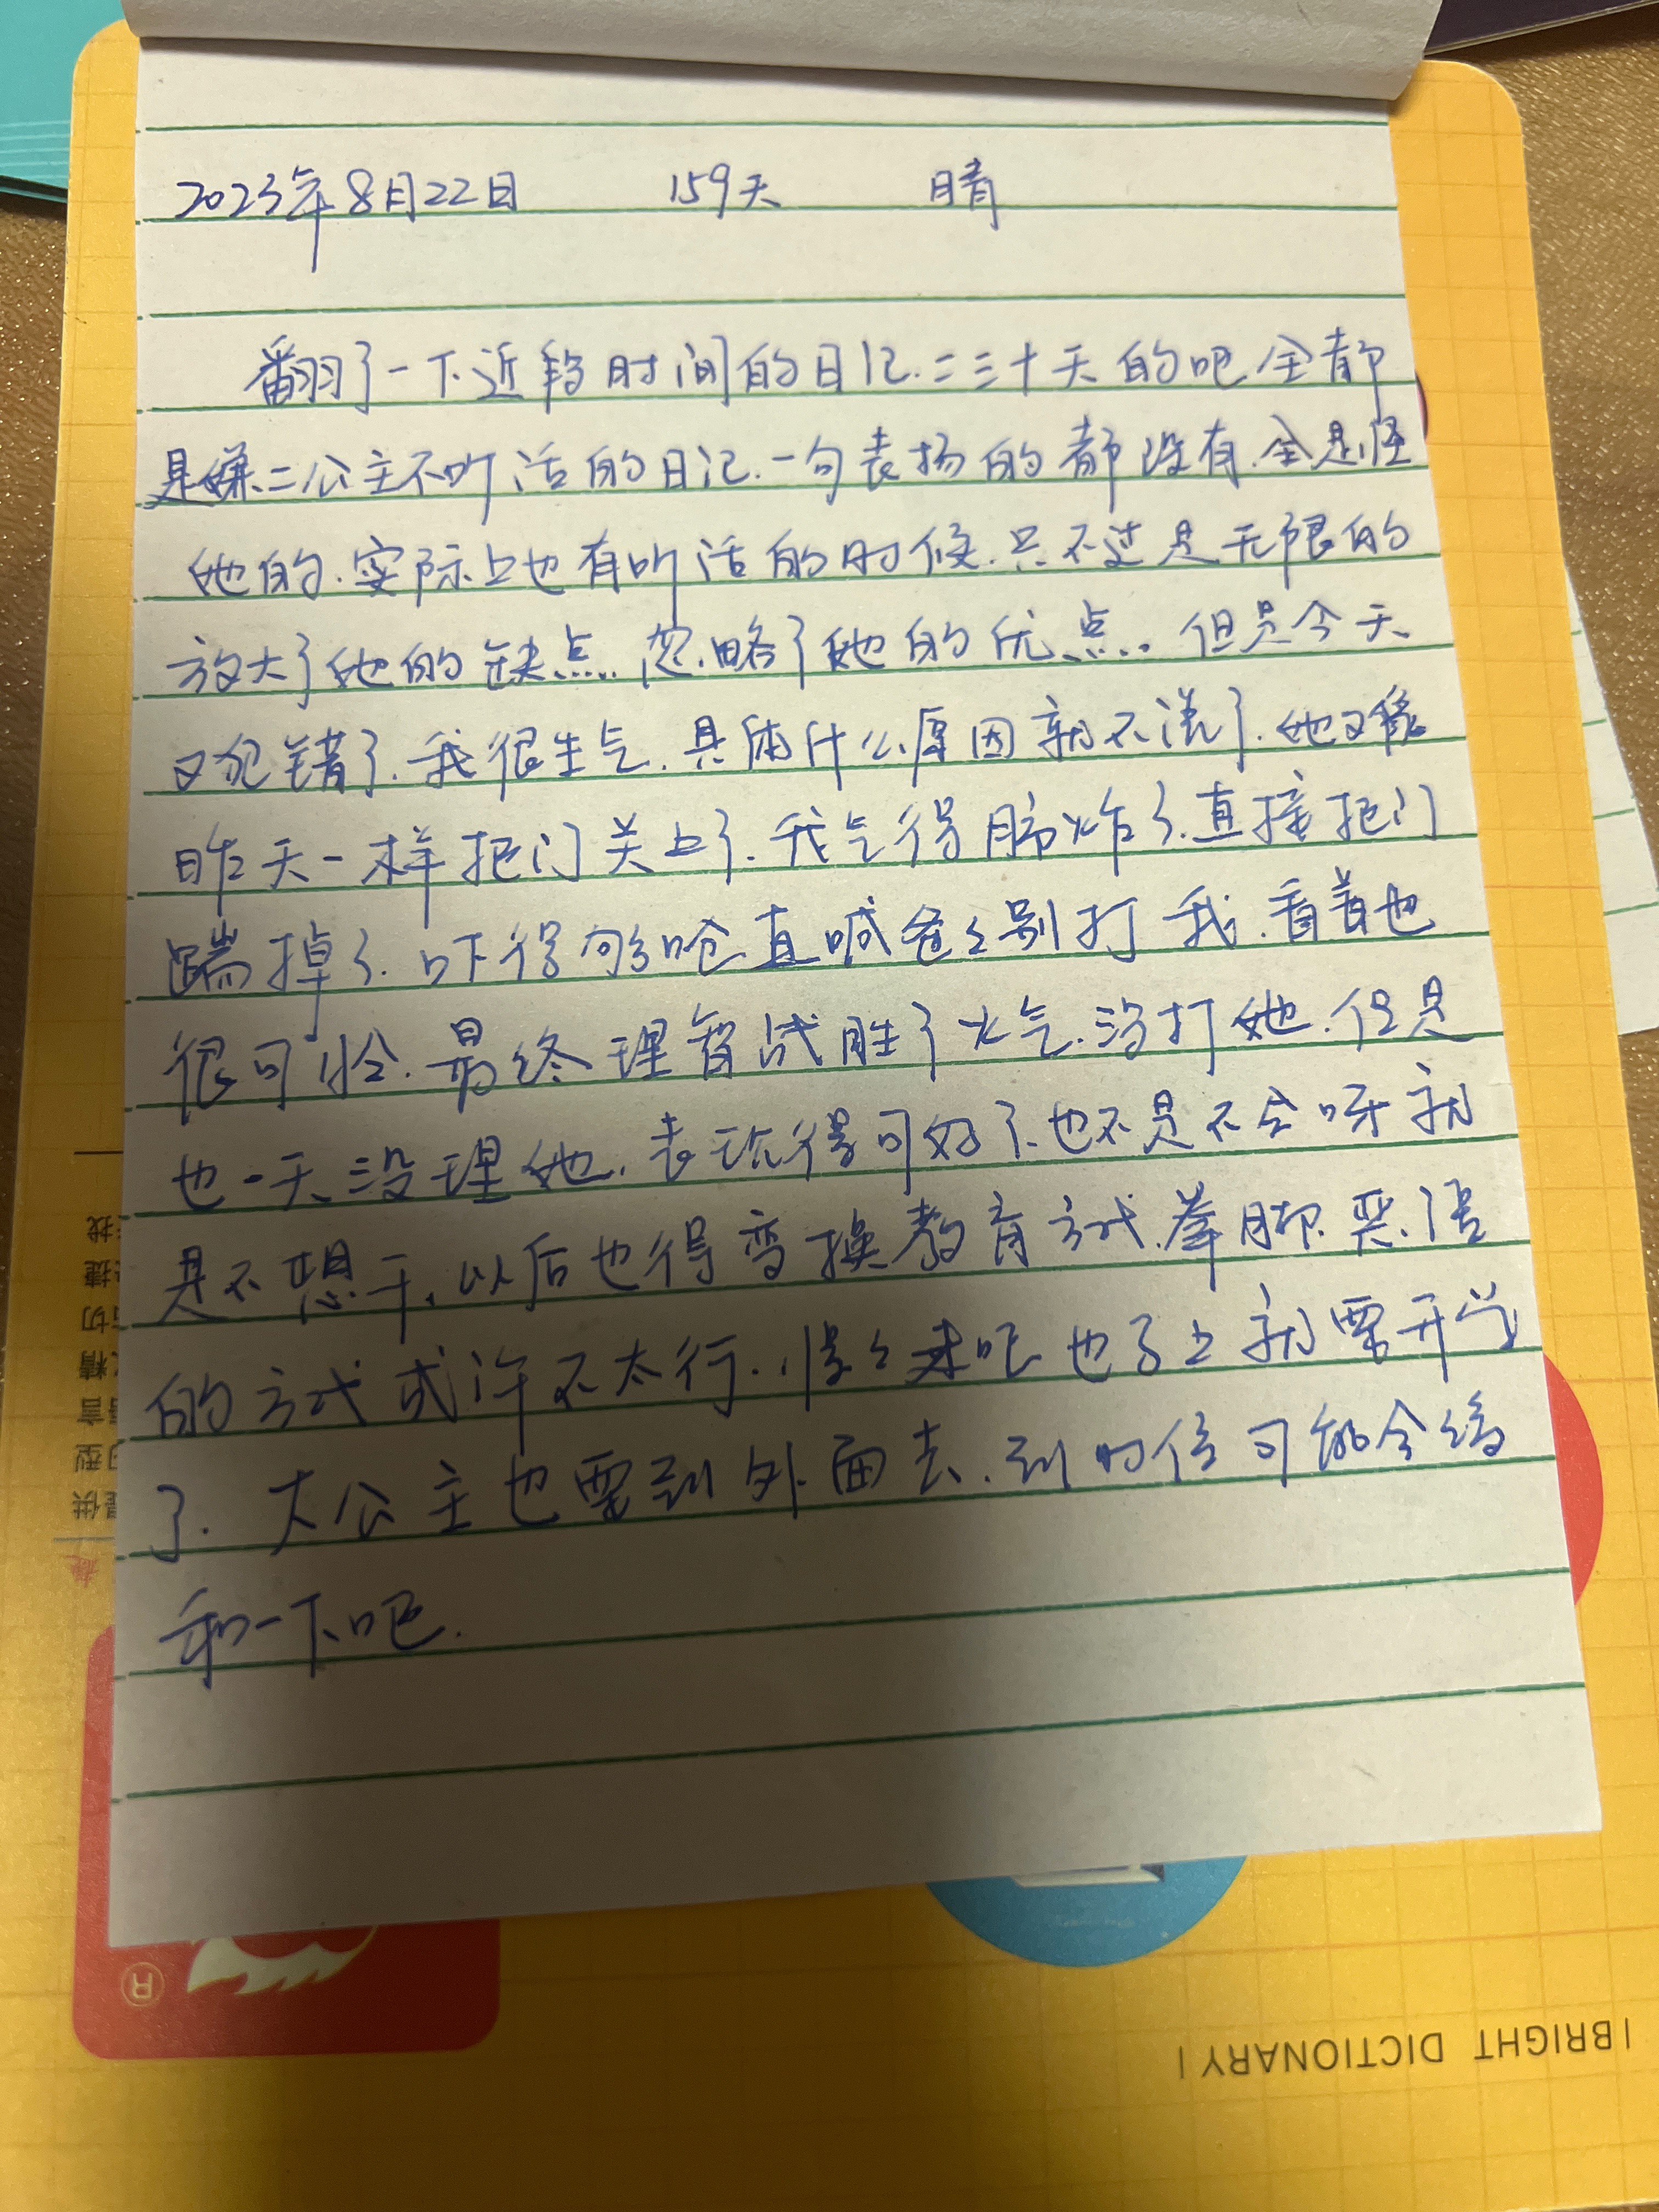 2023年8月22日 159天 晴
翻了一下近段时间的日记.二三十天的吧.全都
是嫌二公主不听话的日记.一句表扬的都没有.全是怪
她的.实际上也有听话的时候.只不过是无限的
放大了她的缺点.忽略了她的优点.但是今天
又犯错了.我很生气.具体什么原因就不说了.她又像
昨天一样把门关上了.我气得肺炸了.直接把门
踹掉了.吓得够呛.直喊爸爸别打我.看着也
很可怜.最终理智战胜了火气.没打她.但是
也一天没理她.表现得可好了.也不是不会呀就
是不想干.以后也得变换教育方式.拳脚.恶语
的方式或许不太行.慢慢来吧.也马上就要开学
了.大公主也要到外面去.到时候可能会缓
和一下吧.
BRIGHT DICTIONARY
R